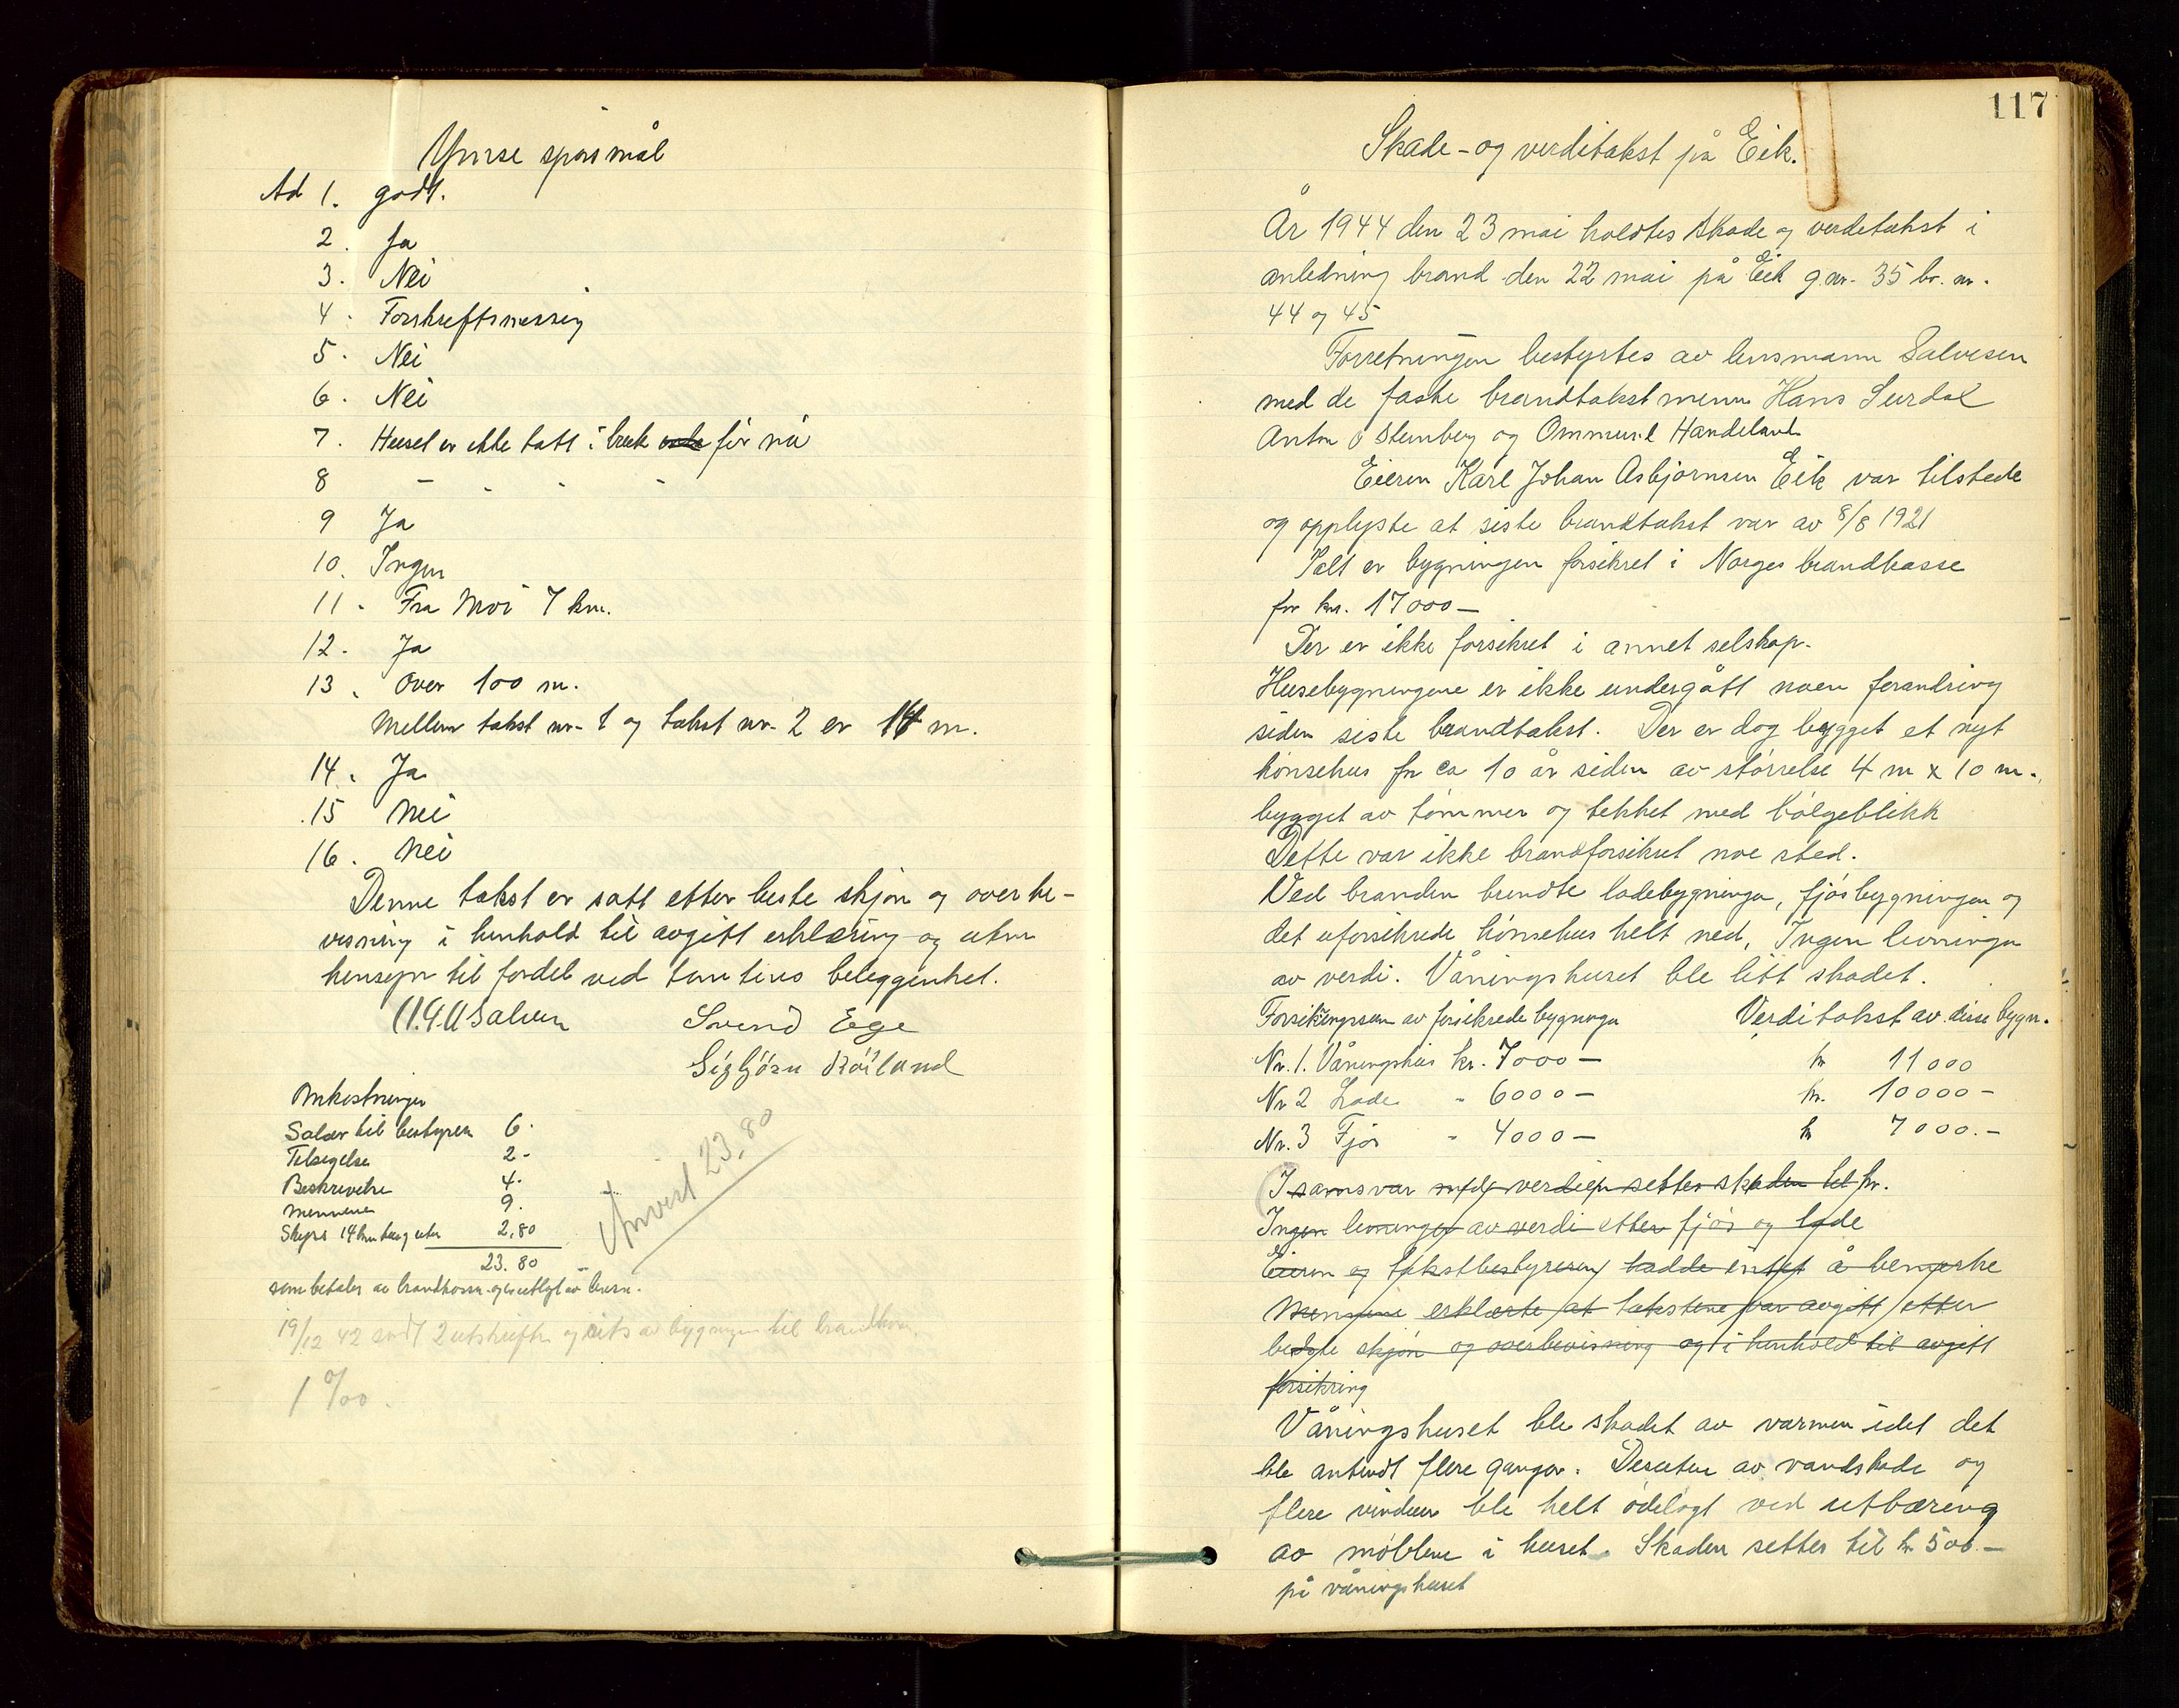 Ymse spørsmål
Ad 1. godt.
2. Ja
3. Nei
4. Forskriftsmessig
5. Nei
6. Nei
7. Huset er ikke tatt i bruk før nu
8 - - - -
9 Ja
10. Ingen
11. Fra Moi 7 km.
12. Ja
13. Over 100 m.
Mellem takst nr. 1 og takst nr. 2 er 14 m.
14. Ja
15 Nei
16. Nei
Denne takst er satt etter beste skjøn og overbe-
visning i henhold til avgitt erklæring og uten
hensyn til fordel ved tomtens beleggenhet.
Salvesen Svend Ege
Sigbjørn Röiland
Omkostninger
Salær til bestyreren 6.
Tilsigelse 2-
Beskrivelse 4.
Mennene 9.
Skyss 14 km tur og retur 2,80
23.80
som betales av brandkassen og er utlagt av lensm.
Anvist 23,80
19/12 42 sendt 2 utskrifter og riss av bygningen til brandkassen.
1 ‰.
117
Skade- og verditakst på Eik.
År 1944 den 23 mai holdtes skade og verditakst i
anledning brand den 22 mai på Eik g.nr. 35 br. nr.
44 og 45
Forretningen bestyrtes av lensmann Salvesen
med de faste brandtakstmenn Hans Surdal
Anton O Steinberg og Ommund Handeland
Eieren Karl Johan Asbjørnsen Eik var tilstede
og opplyste at siste brandtakst var av 8/8 1921
Ialt er bygningen forsikret i Norges brandkasse
for kr. 17000-
Der er ikke forsikret i annet selskap.
Husebygningene er ikke undergått noen forandring
siden siste brandtakst. Der er dog bygget et nytt
hönsehus for ca 10 år siden av störrelse 4 m x 10 m.,
bygget av tömmer og tekket med bölgeblikk
Dette var ikke brandforsikret noe sted.
Ved branden brendte ladebygningen, fjösbygningen og
det uforsikrede hönsehus helt ned, Ingen levninger
av verdi. Våningshuset ble litt skadet.
Forsikringssum av forsikrede bygninger Verditakst av disse bygn.
Nr. 1. Våningshus kr. 7000- kr 11000
Nr 2 Lade " 6000- kr. 10000-
Nr. 3 Fjös " 4000- kr 7000.-
I samsvar med verdien settes skaden til kr.
Ingen levninger av verdi etter fjös og lade
Eieren og takstbestyreren hadde intet å bemerke
Mennene erklærte at takstene var avgitt etter
bedste skjön og overbevisning og i henhold til avgitt
forsikring
Våningshuset ble skadet av varmen idet det
ble antendt flere ganger. Desuten av vandskade og
flere vinduer ble helt ödelagt ved utbæring
av möblene i huset. Skaden settes til kr 500.-
på våningshuset